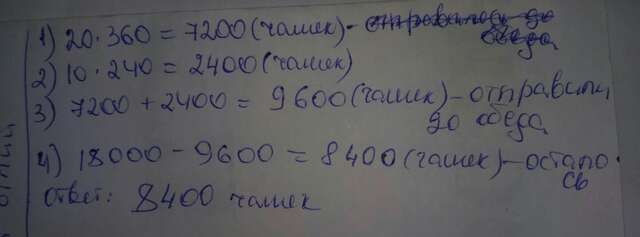 1) 20·360 = 7200 (чашек) -
2) 10·240 = 2400 (чашек)
3) 7200 + 2400 = 9600 (чашек) - отправили
до обеда
4) 18000 - 9600 = 8400 (чашек) - остало
сь
Ответ: 8400 чашек